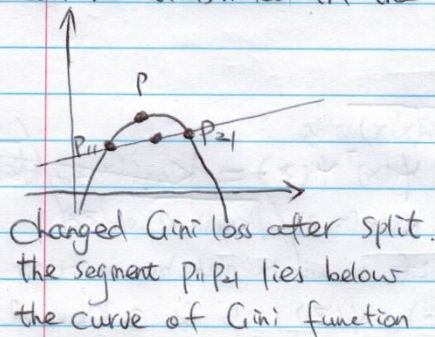 P
P11
P21
changed Gini loss after split.
the segment P11P21 lies below
the curve of Gini function